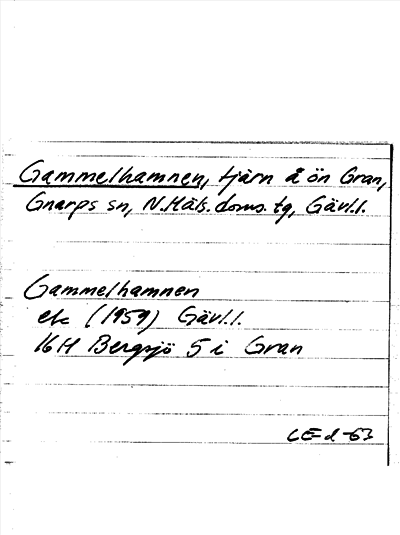 Gammelhamnen, tjärn å ön Gran,
Gnarps sn, N.Häls. doms. tg, Gävl.l.
Gammelhamnen
ek (1959) Gävl.l.
16H Bergsjö 5 i Gran
CE-d -63